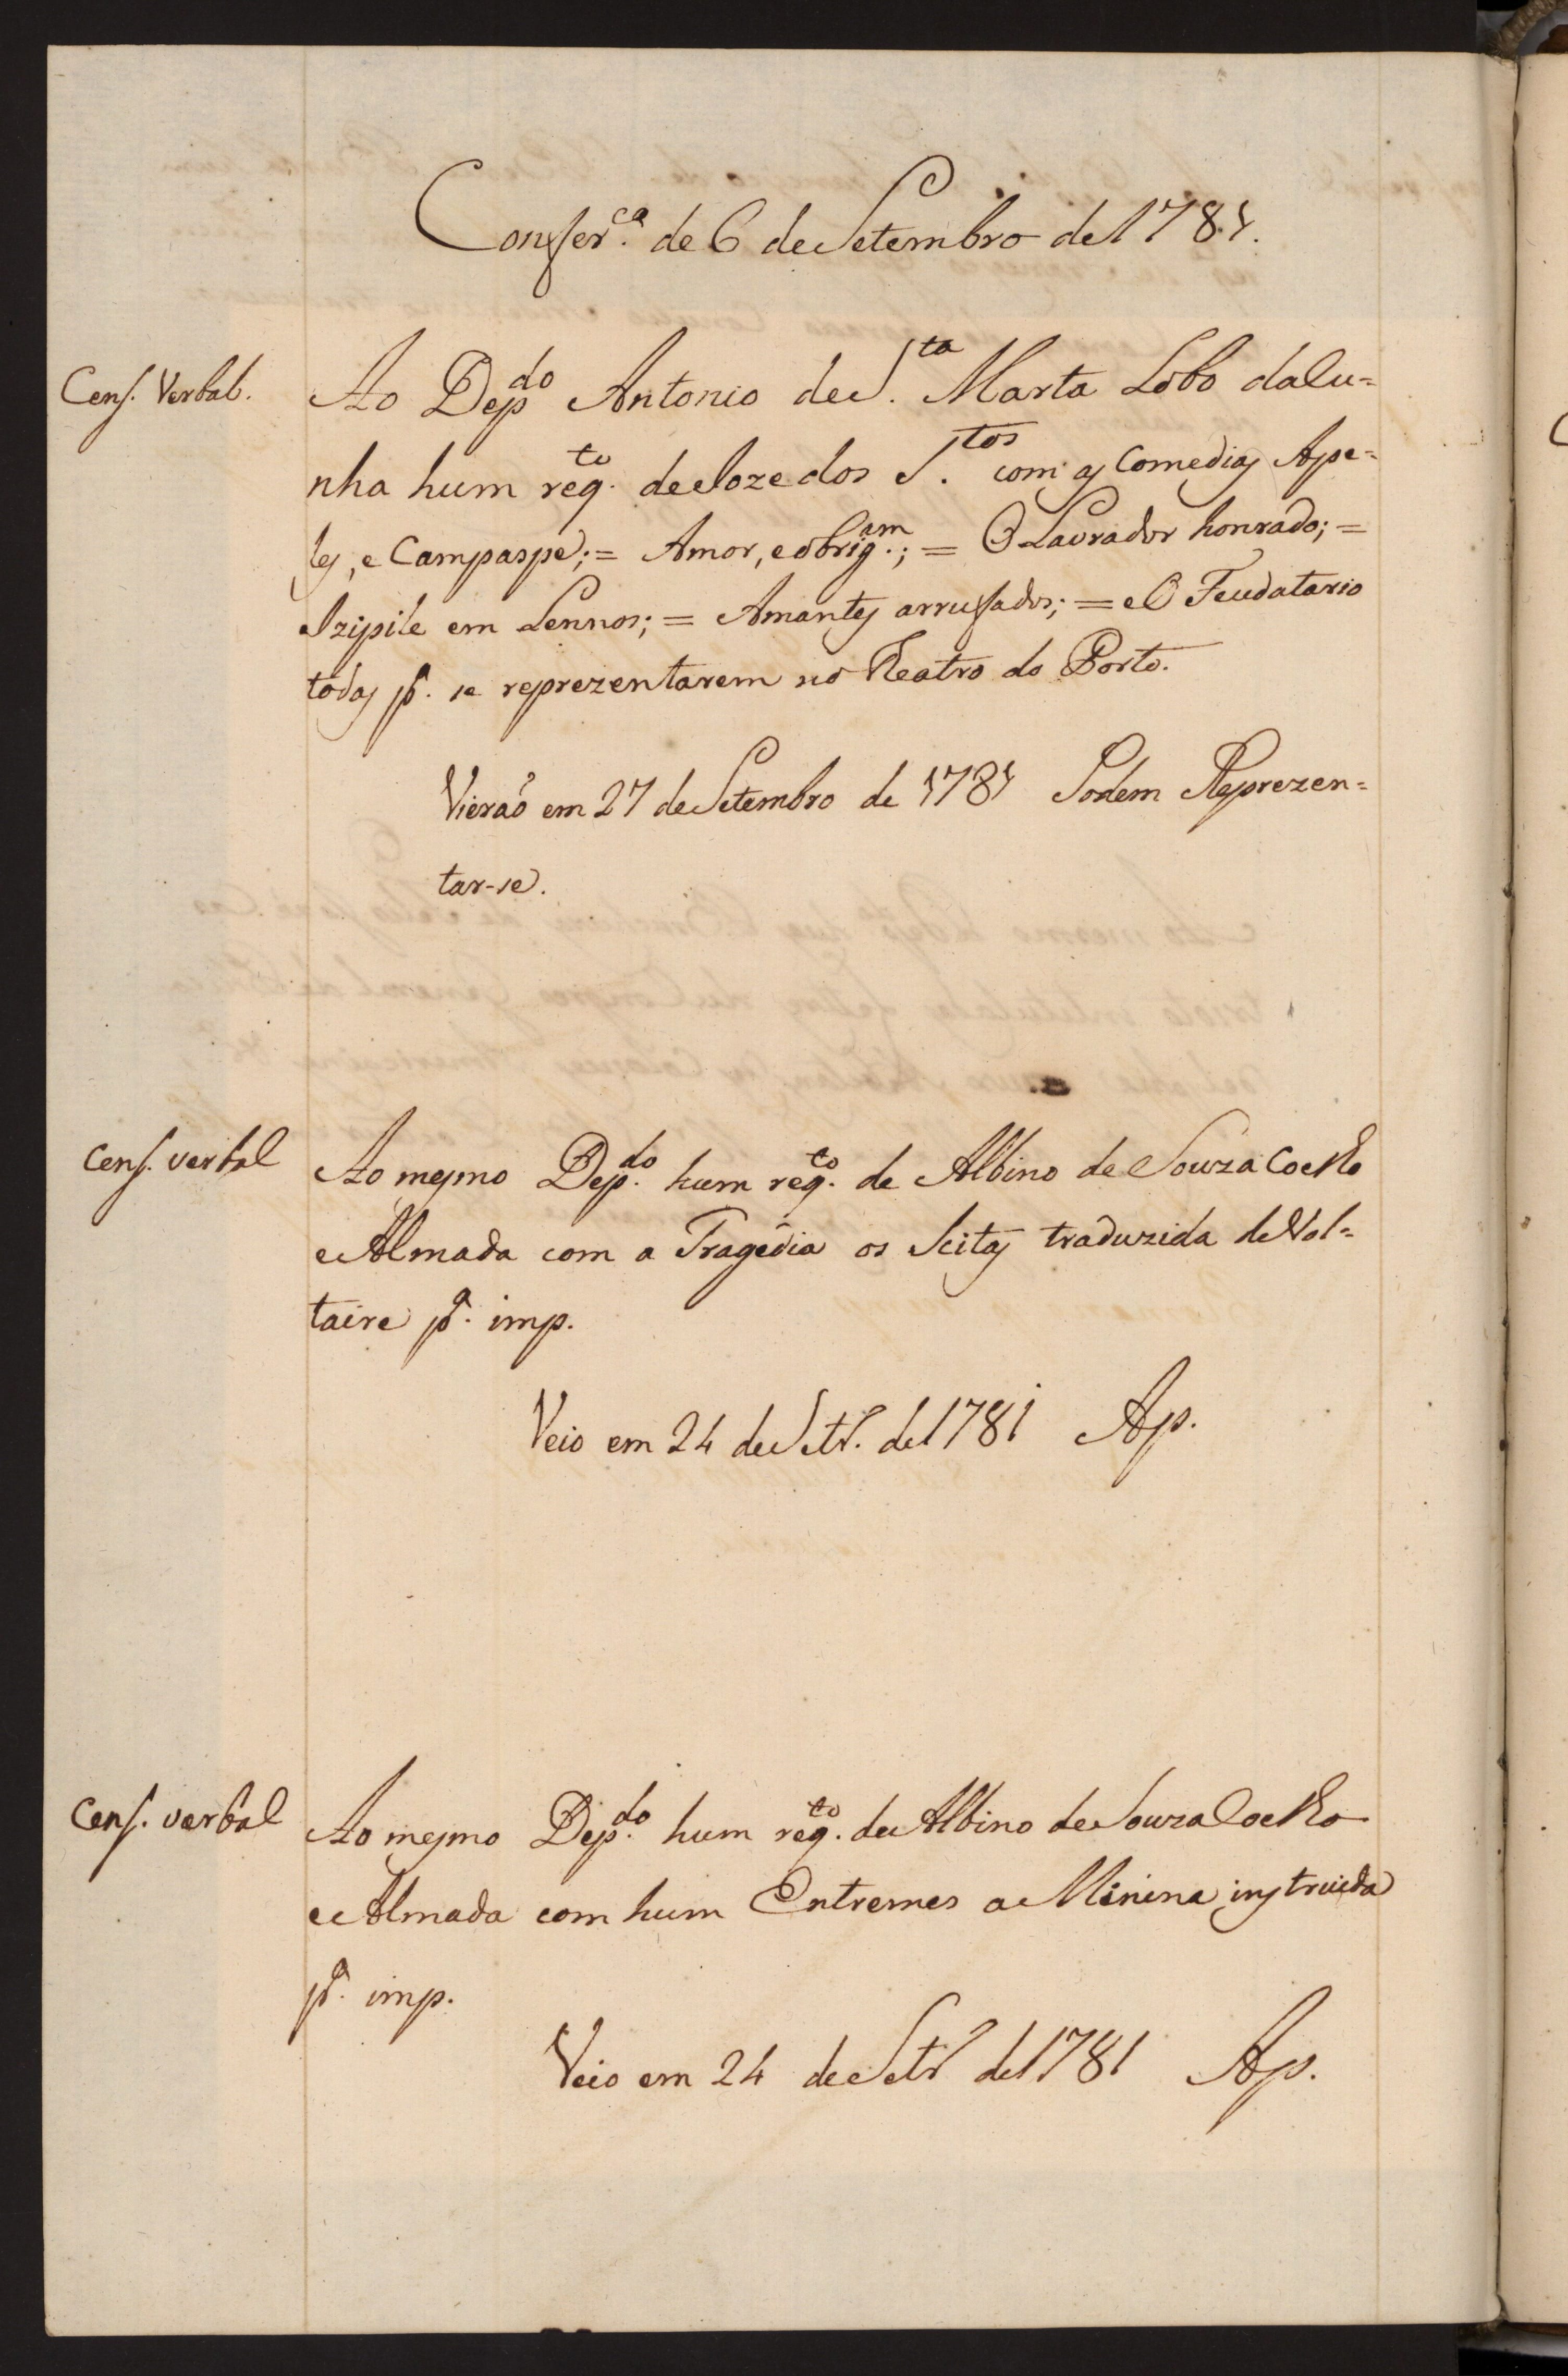 Confer.ca de 6 de Setembro de 1781.
Cens. Verbal.
Ao Depdo Antonio de S.ta Marta Lobo da Cu=
nha hum req.to de Joze dos S.tos com as Comedias Ape=
les, e Campaspe; = Amor, e obrig.am; = O Lavrador honrado; =
Izipile em Lennos; = Amantes arrufados; = e O Feudatario
todas p.a se reprezentarem no Theatro do Porto.
Vieraõ em 27 de Setembro de 1781 Podem Reprezen=
tar-se.
Cens. verbal
Ao mesmo Dep.do hum req.to de Albino de Souza Coelho
e Almada com a Tragedia os Scitas traduzida de Vol=
taire p.a imp.
Veio em 24 de Setr. de 1781 Ap.
Cens. verbal
Ao mesmo Dep.do hum req.to de Albino de Souza Coelho
e Almada com hum Entremes a Minina instruida
p.a imp.
Veio em 24 de Setr de 1781 Ap.